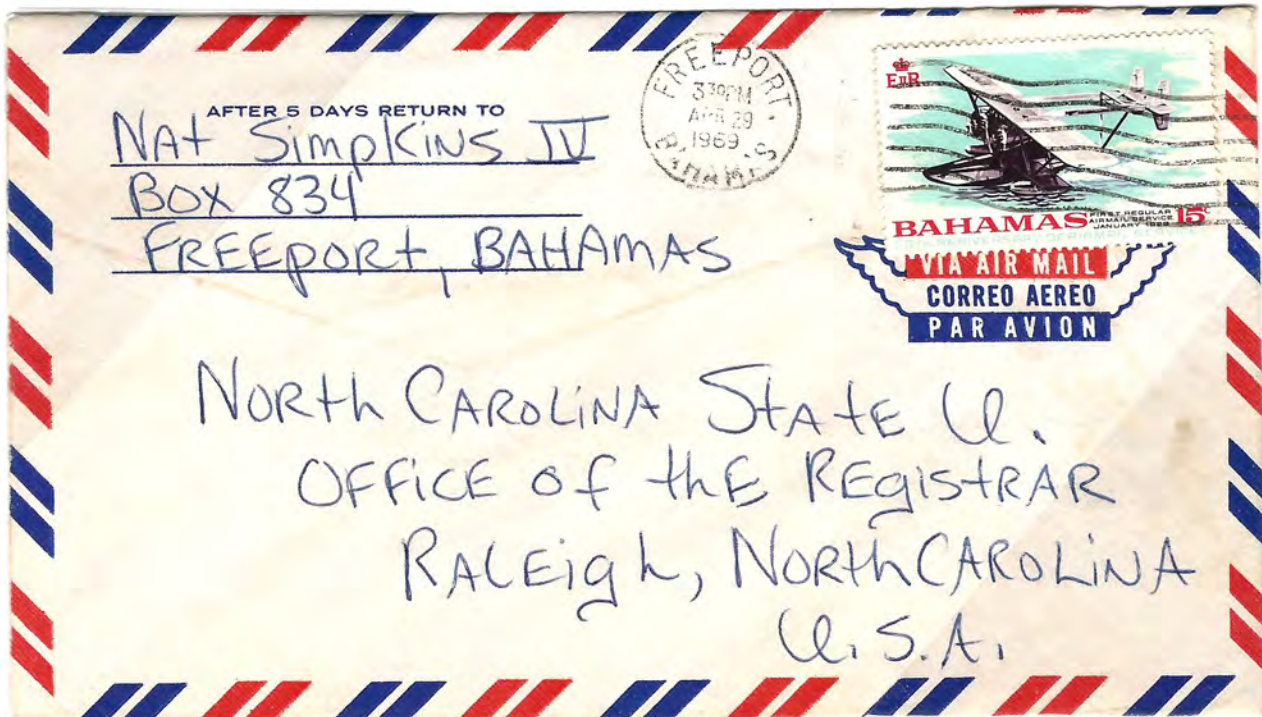 AFTER 5 DAYS RETURN TO
NAt SimpKiNS IV
BOX 834
FREEport, BAHAmAS
FREEPORT
3 30PM
APR 29
1969
BAHAMAS
EIIR
BAHAMAS
FIRST REGULAR
AIRMAIL SERVICE
JANUARY 1929
15c
50TH ANNIVERSARY OF BAHAMAS AIRMAIL SERVICE
VIA AIR MAIL
CORREO AEREO
PAR AVION
NORth CAROLiNA StAtE U.
OFFiCE of thE REgistRAR
RALEigh, NORth CAROLiNA
U.S.A.